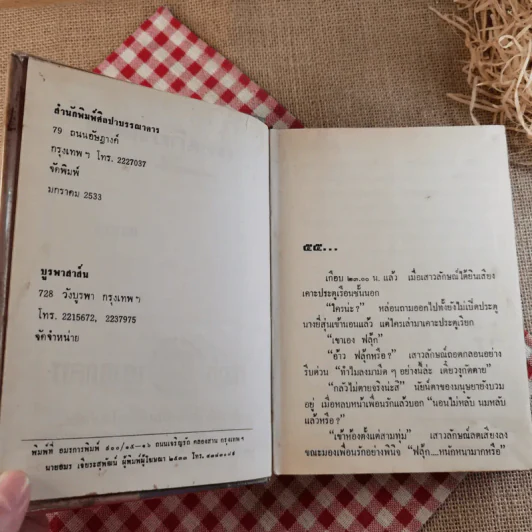 สำนักพิมพ์ศิลปาบรรณาคาร
79 ถนนอัษฎางค์
กรุงเทพฯ โทร. 2227037
จัดพิมพ์
มกราคม 2533
บูรพาสาส์น
728 วังบูรพา กรุงเทพฯ
โทร. 2215672, 2237975
จัดจำหน่าย
พิมพ์ที่ อมรการพิมพ์ ถนนเจริญรัถ คลองสาน กรุงเทพฯ
นายสมร ผู้พิมพ์ผู้โฆษณา ๒๕๓๓ โทร.
๔๕...
เกือบ ๒๓.๐๐ น. แล้ว เมื่อเสาวลักษณ์ได้ยินเสียง
เคาะประตูเรือนชั้นนอก
“ใครน่ะ?” หล่อนถามออกไปทั้งยังไม่เปิดประตู
นางยี่สุ่นเข้านอนแล้ว แต่ใครเล่ามาเคาะประตูเรียก
“เขาเอง ฟลุ้ก”
“อ้าว ฟลุ้กหรือ?” เสาวลักษณ์ถอดกลอนอย่าง
รีบด่วน “ทำไมลงมามืด ๆ อย่างนี้ล่ะ เดี๋ยวงูกัดตาย”
“กลัวไม่ตายจริงน่ะสิ” นัยน์ตาของมุกดายังบวม
อยู่ เมื่อหลบหน้าเพื่อนรักแล้วบอก “นอนไม่หลับ นมหลับ
แล้วหรือ?”
“เข้าห้องตั้งแต่สามทุ่ม” เสาวลักษณ์ลดเสียงลง
ขณะมองเพื่อนรักอย่างพินิจ “ฟลุ้ก...หนักหนามากหรือ”